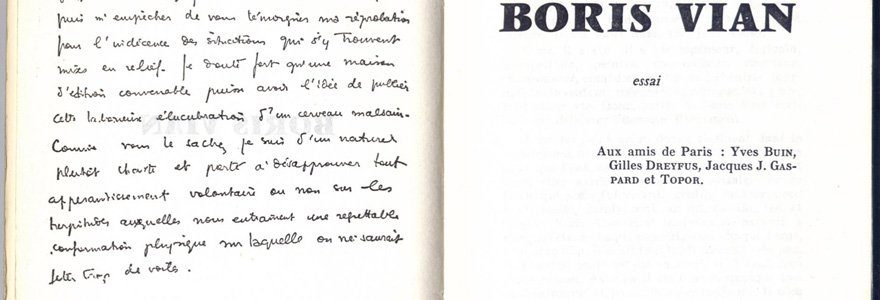 puis m'empêcher de vous témoigner ma réprobation
pour l'indécence des situations qui s'y trouvent
mises en relief. Je doute fort qu'une maison
d'édition convenable puisse avoir l'idée de publier
cette laborieuse élucubration d'un cerveau malsain.
Comme vous le sachez je suis d'un naturel
plutôt chaste et porté à désapprouver tout
appesantissement volontaire ou non sur les
turpitudes auxquelles nous entraînent une regrettable
conformation physique sur laquelle on ne saurait
jeter trop de voiles.
BORIS VIAN
essai
Aux amis de Paris : Yves BUIN,
Gilles DREYFUS, Jacques J. GAS-
PARD et TOPOR.